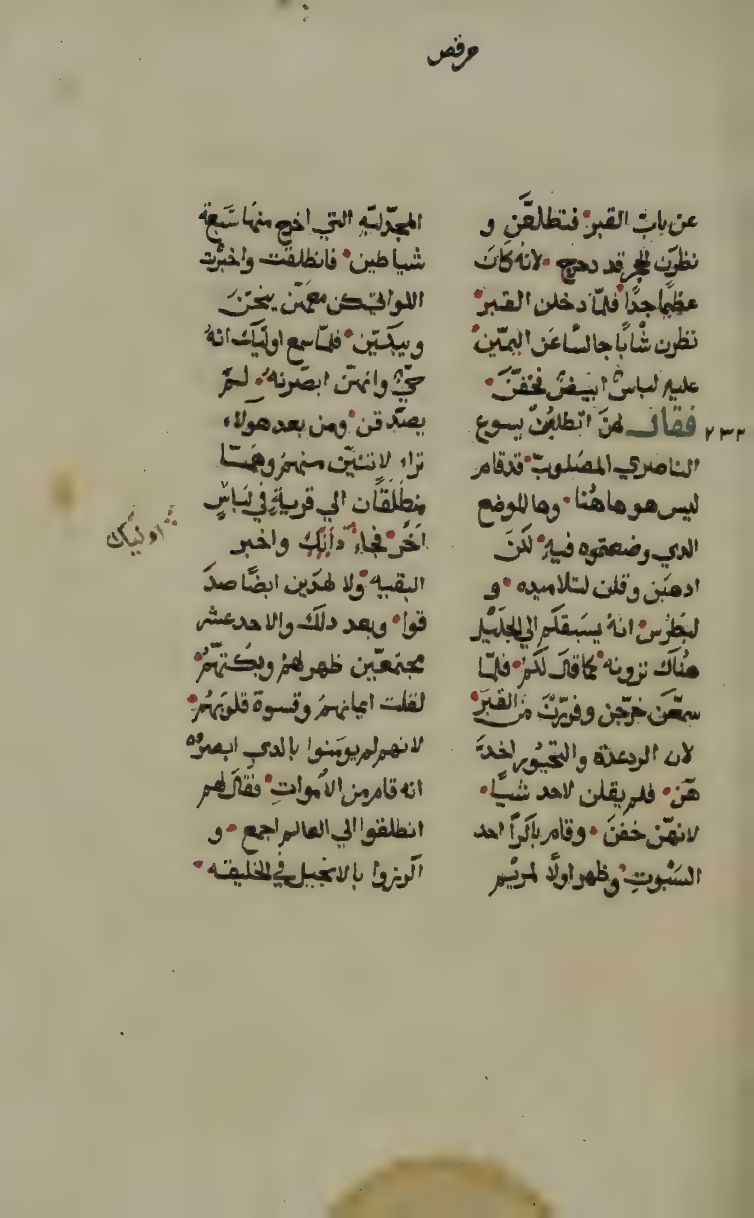 مرقص
عن باب القبر فتطلعن و
نظرن الحجر قد دحرج لانه كان
عظيما جدا فلما دخلن القبر
نظرن شابا جالسا عن اليمين
عليه لباس ابيض فخفن
فقال لهن اتطلبن يسوع
٢٣٢
الناصري المصلوب قد قام
ليس هو هاهنا وها الموضع
الدي وضعتموه فيه لكن
ادهبن وقلن لتلاميده و
لبطرس انه يسبقكم الي الجليل
هناك ترونه كما قال لكم فلما
سمعن خرجن وفررن من القبر
لان الرعدة والتحيور اخدة
هن فلم يقلن لاحد شيا
لانهن خفن وقام باكرا احد
السبوت وظهر اولا لمريم
المجدلية التي اخرج منها سبعة
شياطين فانطلقت واخبرت
اللواتي كن معهن ينحن
ويبكين فلما سمع اوليك انه
حي وانهن ابصرنه لم
يصدقن ومن بعد هولاء
تراء لاثنين منهم وهما
منطلقان الي قرية في لباس
اخر فجاء دانك واخبر
اوليك
البقيه ولا لهدين ايضا صد
قوا وبعد دلك والاحد عشر
مجتمعين ظهر لهم وبكتهم
لقلت ايمانهم وقسوة قلوبهم
لانهم لم يومنوا بالدي ابصروه
انه قام من الاموات فقال لهم
انطلقوا الي العالم اجمع و
اكرزوا بالانجيل في الخليقه